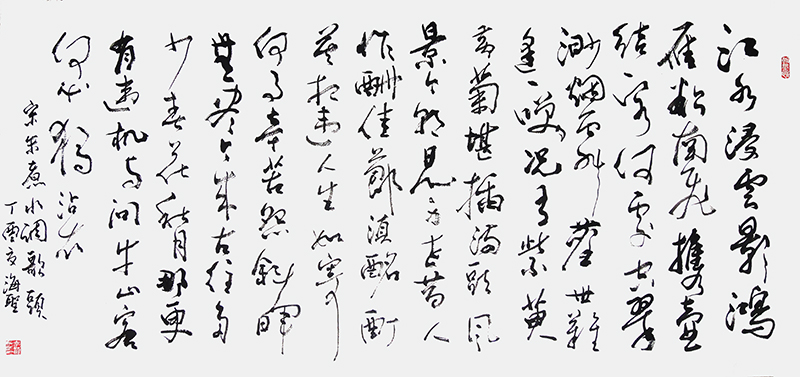 江水浸雲影鴻
雁欲南飛携壺
结客何處空翠
渺烟霏塵世難
逢一笑况有紫萸
黄菊堪插满頭风
景今朝是身世昔人
非酬佳節須酩酊
莫相违人生如寄
何事辛苦怨斜暉
無尽今来古往多
少春花秋月那更
有危机与问牛山客
何必獨沾衣
宋朱熹水调歌頭
丁酉夏海聖